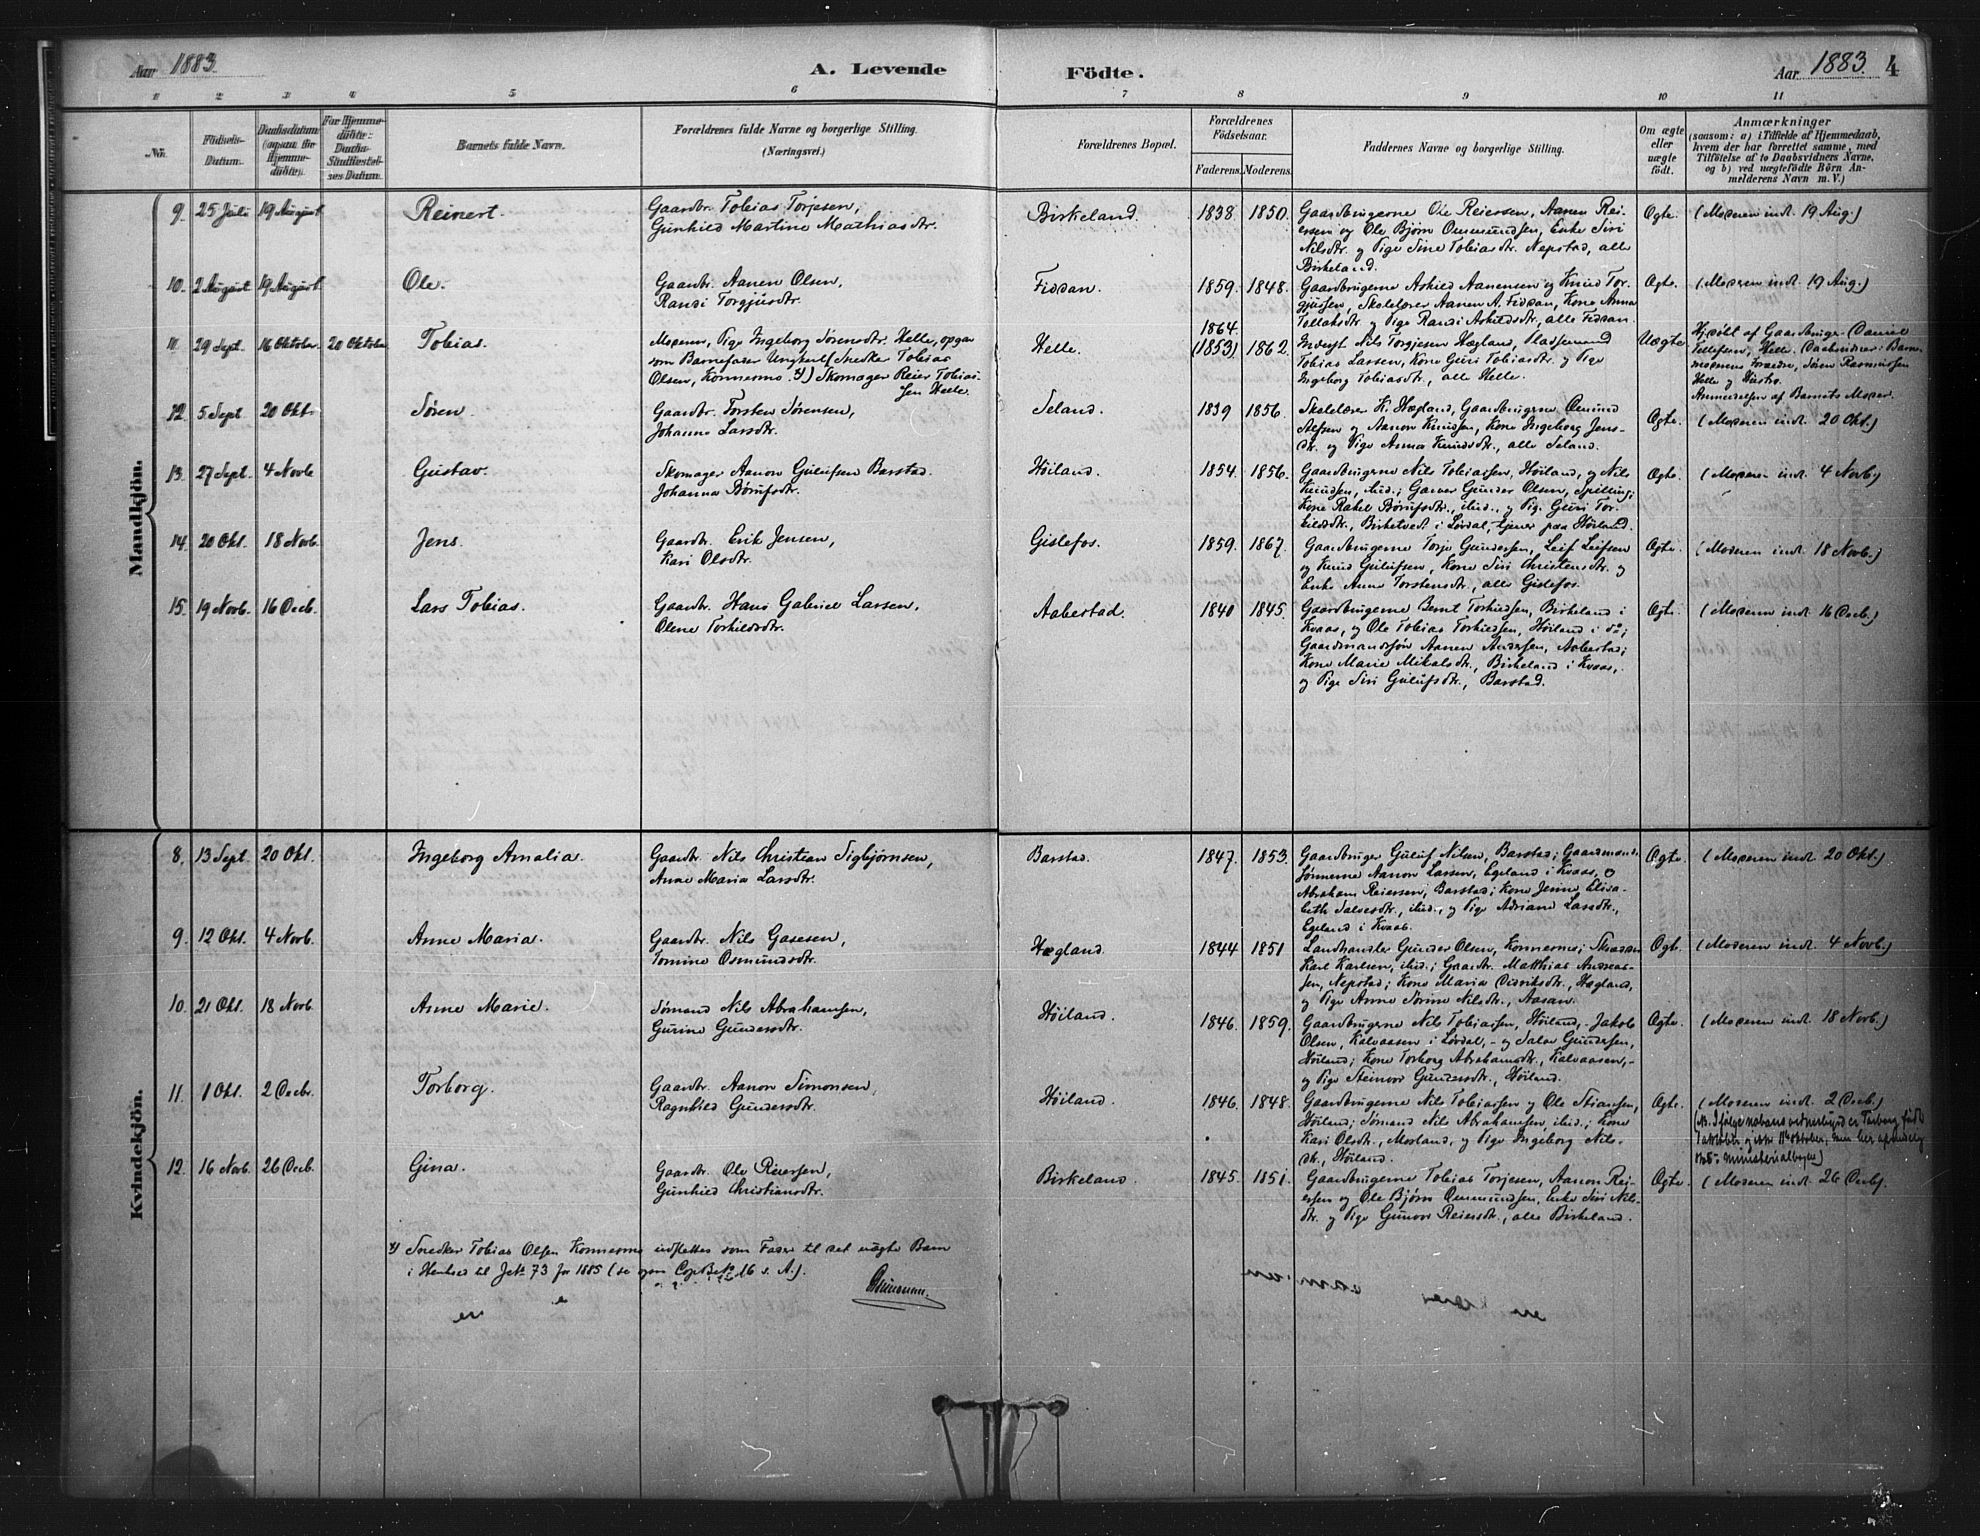 Aar 1883.
A. Levende
Födte.
Aar 1883. 4
1 2 3 4 5 6 7 8 9 10 11
No.
Födsels-
Datum.
Daabsdatum
Hjemme-
döbte).
For Hjemme-
döbte:
Daabs-
Stadfæstel-
ses Datum.
Barnets fulde Navn.
Forældrenes fulde Navne og borgerlige Stilling.
(Næringsvei.)
Forældrenes Bopæl.
Forældrenes
Födselsaar.
Faderens. Moderens.
Faddernes Navne og borgerlige Stilling.
Om ægte
eller
uægte
födt.
Anmærkninger
(saasom: a) i Tilfælde af Hjemmedaab,
hvem der har forrettet samme, med
Tilföielse af to Daabsvidners Navne,
og b) ved uægtefödte Börn An-
melderens Navn m. V.)
Mandkjön.
9. 25 Juli 19 August
Reinert.
Gaardbr. Tobias Torjesen,
Gunhild Martine Mathiasdtr.
Birkeland.
1838. 1850.
Gaardbrugerne Ole Reiersen, Aanen Rei-
ersen og Ole Bjørn Ommundsen, Enke Siri
Nilsdtr. og Pige Sine Tobiasdtr. Nepstad, alle
Birkeland.
Ægte.
(Moderen indt. 19 Aug.)
10. 2 August 19 August
Ole.
Gaardbr. Aanen Olsen,
Randi Torgjusdtr.
Fidsan.
1859. 1848.
Gaardbrugerne Askild Aanensen og Knud Tor-
gjusen, Skolelærer Aanen A. Fidsan, Kone Anna
Tollaksdtr. og Pige Randi Askildsdtr., alle Fidsan.
Ægte.
(Moderen indt. 19 Aug.)
11. 29 Sept. 16 Oktober 20 Oktober
Tobias.
Moderen, Pige Ingeborg Sørensdtr. Helle, opgav
som Barnefader Ungkarl Snedker Tobias
Olsen, Konnesmo. *) Skomager Reier Tobias-
sen Helle.
Helle.
1864.
(1853) 1862.
Inderst Nils Torgjesen Hægland, Pladsemand
Tobias Larsen, Kone Guri Tobiasdtr. og Pige
Ingeborg Tobiasdtr., alle Helle.
Uægte
Hjdøbt af Gaardbruger Daniel
Tellefsen, Helle. Daabsvidner: Barne-
moderens Forældre, Søren Rasmussen
Helle og Hustru.
Anmeldelsen af Barnets Moder.
12. 5 Sept 20 Okt.
Søren.
Gaardbr. Torsten Sørensen,
Johanne Larsdtr.
Seland.
1839 1856.
Skolelærer K. Hægland, Gaardbrugerne Omund
Alfsen og Aanon Knudsen, Kone Ingeborg Jens-
dtr. og Pige Anna Knudsdtr., alle Seland.
Ægte.
(Moderen indt. 20 Okt.)
13. 27 Sept. 4 Novb
Gustav.
Skomager Aanon Gulufsen Barstad.
Johanna Børufsdtr.
Höiland.
1854. 1856.
Gaardbrugerne Nils Tobiassen, Höiland, og Nils
Knudsen, ibid.; Garver Gunder Olsen, Spilling;
Kone Rakel Børufsdtr., ibid., og Pige Guri Tor-
kildsdtr., Birketvedt i Lördal, tjener paa Höiland.
Ægte.
(Moderen indt. 4 Novb.)
14. 20 Okt. 18 Novb.
Jens.
Gaardbr. Erik Jensen,
Kari Olsdtr.
Gislefos.
1859. 1867.
Gaardbrugerne Torje Gundersen, Leif Leifsen
og Knud Gulufsen, Kone Siri Christensdtr. og
Enke Anne Torstensdtr., alle Gislefos.
Ægte.
(Moderen indt. 18 Novb.)
15. 19 Novb. 16 Decb.
Lars Tobias.
Gaardbr. Hans Gabriel Larsen,
Olene Torkildsdtr.
Aabestad.
1840 1845.
Gaardbrugerne Bernt Torkildsen, Birkeland i
Kvaas, og Ole Tobias Torkildsen, Höiland i do;
Gaardmandssøn Aanen Andersen, Aabestad;
Kone Marie Mikalsdtr., Birkeland i Kvaas,
og Pige Siri Gulufsdtr., Barstad.
Ægte.
(Moderen indt. 16 Decb.)
Kvindekjön.
8. 13 Sept. 20 Okt.
Ingeborg Amalia.
Gaardbr. Nils Christian Sigbjørnsen,
Anne Maria Larsdtr.
Barstad.
1847. 1853.
Gaardbruger Guluf Nilsen, Barstad; Gaardmands-
sønnerne Aanon Larsen, Egeland i Kvaas, og
Abraham Reiersen, Barstad; Kone Jenne Elisa-
beth Salvesdtr., ibid., og Pige Adriane Larsdtr.,
Egeland i Kvaas.
Ægte.
(Moderen indt. 20 Okt.)
9. 12 Okt. 4 Novb.
Anne Maria.
Gaardbr. Nils Gasesen,
Tomine Osmundsdtr.
Hægland.
1844 1851
Landhandler Gunder Olsen, Konnesmo; Skrædder
Karl Karlsen, ibid.; Gaardbr. Matthias Andreas-
sen, Nepstad; Kone Maria Didriksdtr., Hægland,
og Pige Anne Sørine Nilsdtr., Aasan.
Ægt.
(Moderen indt. 4 Novb.)
10. 21 Okt. 18 Novb.
Anne Marie.
Sømand Nils Abrahamsen,
Gurine Gundersdtr.
Höiland.
1846. 1859.
Gaardbrugerne Nils Tobiassen, Höiland, - Jakob
Olsen, Kalvaasen i Lördal, - og Salve Gundersen,
Höiland; Kone Torborg Abrahamsdtr., Kalvaasen,-
og Pige Steinvor Gundersdtr., Höiland.
Ægte.
(Moderen indt. 18 Novb.)
11. 1 Okt. 2 Decbr.
Torborg.
Gaardbr. Aanon Simonsen,
Ragnhild Gundersdtr.
Höiland.
1846. 1848.
Gaardbrugerne Nils Tobiassen og Ole Stiansen,
Höiland; Sømand Nils Abrahamsen, ibid.; Kone
Kari Olsdtr., Mosland, og Pige Ingeborg Nils-
dtr., Höiland.
Ægte.
(Moderen indt. 2 Decb.)
12. 16 Novb. 26 Decb.
Gina.
Gaardbr. Ole Reiersen,
Gunhild Christiansdtr.
Birkeland.
1845. 1851.
Gaardbrugerne Tobias Torjesen, Aanon Rei-
ersen og Ole Bjørn Ommundsen, Enke Siri Nils-
dtr. og Pige Gunvor Reiersdtr., alle Birkeland.
Ægte.
(Moderen indt. 26 Decb).
*) Snedker Tobias Olsen Konnesmo indsættes som Fader til det uægte Barn
i Henhold til Jr. 73 for 1885